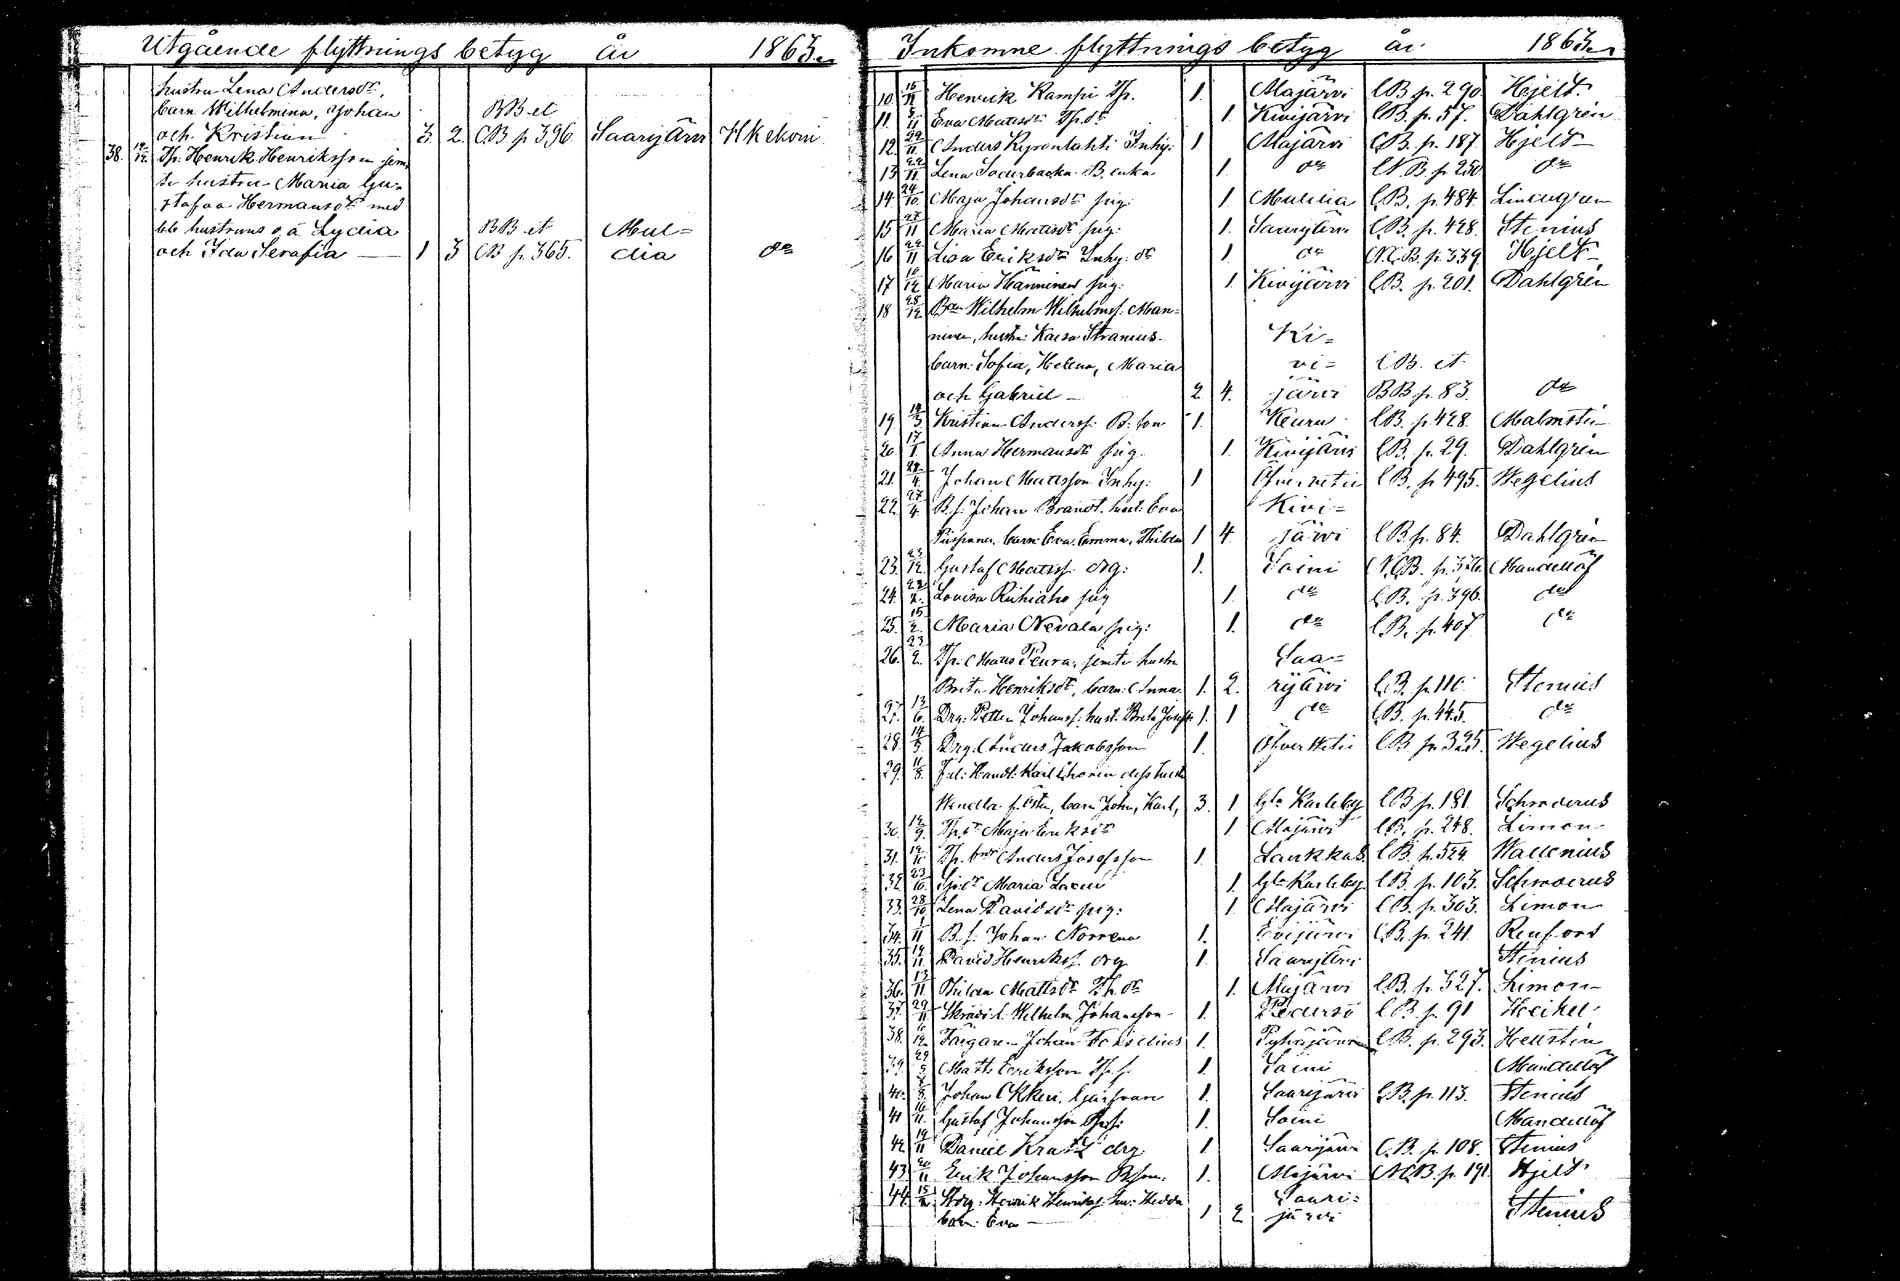 Utgående flyttnings betyg år 1863.
hustru Lena Andersdr,
barn Wilhelmina, Johan BB et
och Kristian 3. 2. CB p 396 Saarijärvi HKekoni
38. 19/12. Tp. Henrik Henriksson jem
te hustru Maria Gu-
stafva Hermansdr med
hustruns o. ä Lydia BB et Mul=
och Ida Serafia — 1 3 CB p. 365. dia do
Inkomne flyttnings betyg år 1863.
10. 15/11 Henrik Kampi Tp. 1. Alajärvi CB p. 290 Hjelt
11. 5/11 Eva Mattsdr Tp. dr 1. Kivijärvi CB. p. 57. Dahlgrén
12. 22/11 Anders Kyrönlahti Inhy: 1 Alajärvi CB. p. 187. Hjelt
13 22/11 Lena Söderbacka B. enka 1. do N. B. p 250 do
14. 24/10. Maja Johansdr pig: 1 Multia CB. p. 484. Lindegren
15 27/11 Maria Mattsdr pig: 1. Saarijärvi CB. p. 428. Stenius
16 22/11 Lisa Eriksdr Inhy. dr 1 do N.C.B. p. 339. Hjelt
17 10/12 Maria Hänninen pig: 1. Kivijärvi CB. p. 201. Dahlgrén
18 28/12. Bon Wilhelm Wilhelmss. Man=
ninen, hustru Kaisa Stranius Ki=
barn: Sofia, Helena, Maria vi= CB. et
och Gabriel — 2 4. järvi BB p. 83. do
19. 14/3 Kristian Anderss. B. son 1. Keuru CB. p. 428. Malmstén
20 17/1 Anna Hermansdr pig. 1. Kivijärvi CB. p. 29. Dahlgrén
21. 24/4. Johan Mattsson Inhy: 1 CB. p 495. Wegelius
22. 27/4 B. s. Johan Brandt. hust. Eva Kivi=
barn Eva, Emma, Thilda 1 4. järvi CB p. 84. Dahlgrén
23. 23/12. Gustaf Matss. drg: 1. Soini N.CB. p. 326. Mandellöf
24. Lovisa Riihiaho pig 1. do CB. p. 396. do
25. 15/2. Maria Nevala pig: 1. do CB. p. 407 do
26. 23/2. Tp. Matts Peura, jemte hustru Saa=
Brita Henriksdr, barn: Anna. 1. 2. rijärvi CB. p. 110. Stenius
27. 13/6. Drg: Petter Johanss: hust. Brita Josefs 1. 1 do CB. p. 445. do
28. 14/5. Drg: Anders Jakobsson 1. Öfvervetil CB p. 325. Wegelius
29. 11/8. Handl. Karl dess hustru
Wendla barn John, Karl, 3. 1 Gla Karleby CB p. 181. Schroderus
30. 12/9. Tp. dr Maja Eriksdr 1 Alajärvi CB. p. 248. Limon
31. 12/10 Tp. Anders Josefsson 1. Laukkas CB p. 524. Wallenius
32. 23/10. Maria 1. Gla Karleby CB. p. 103. Schroderus
33. 28/10 Lena Davidsdr pig: 1. Alajärvi CB. p. 303. Limon
34. 1/11 B. s. Johan Norrena 1. Evijärvi CB. p. 241. Renfors
35. 12/11. David Henrikss. drg 1. Saarijärvi Stenius
36. 13/11 Thilda Mattsdr Tp. dr 1. Alajärvi CB. p. 327. Limon
37. 29/11 Skräd. l. Wilhelm Johansson 1. Pedersö CB p. 91 Heikel
38. 6/12. Färgaren Johan Forselius 1. Pyhäjärvi CB. p. 293. Hellstén
39. 29/5 Matts Eriksson Tp. s. 1. Soini Mandellöf
40. Johan Okkeri, 1. Saarijärvi CB. p. 113. Stenius
41 16/11. Gustaf Johansson 1. Soini Mandellöf
42. 14/11 Daniel Kratz drg 1 Saarijärvi CB. p. 108. Stenius
43. 20/11 Erik Johansson Bson. 1. Alajärvi NCB. p. 191 Hjelt
44. 15/2. Henrik Henrikss. hu: Hedda Saari=
barn: Eva — 1 2 järvi Stenius